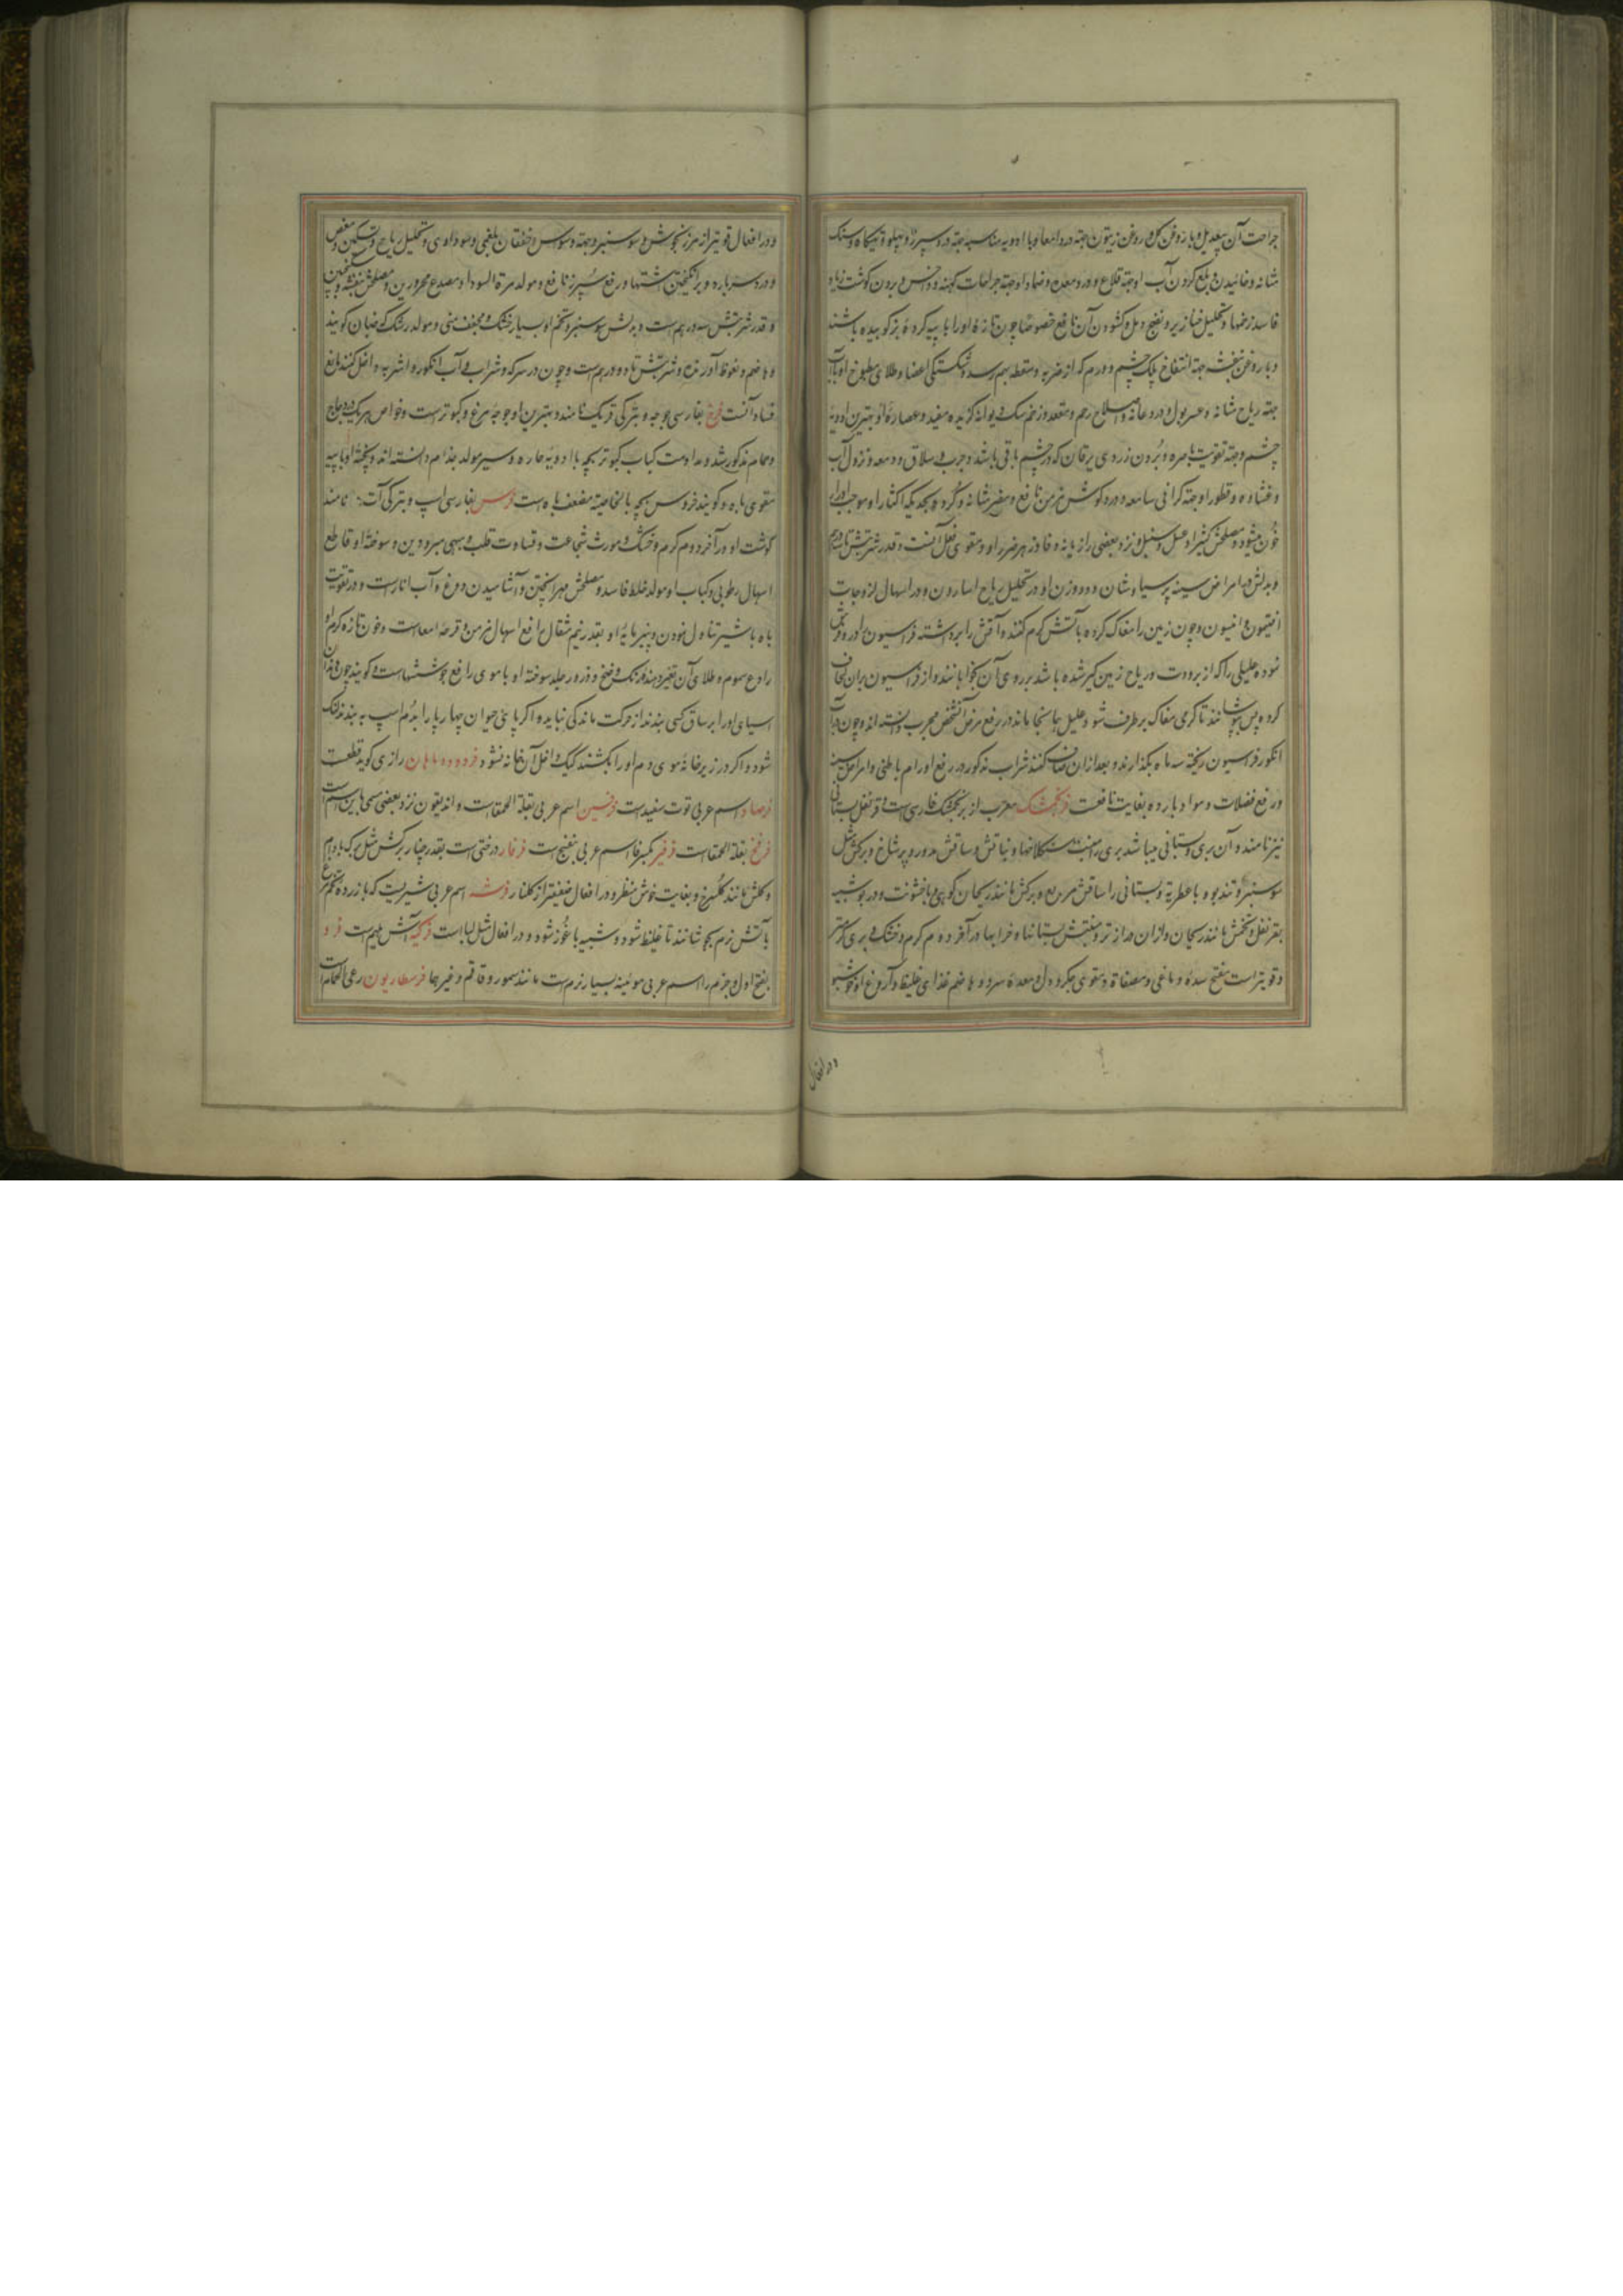 جراحت آن بیعدیل و با روغن گل و روغن زیتون جهة درد امعا و با ادویه مناسبه جهة درد سپرز و پهلو و تهیکاه و سنک
مثانه و خائیدن و بلع کردن آب او جهة قلاع و درد معده و ضماد او جهة جراحات کهنه و داخس و بردن کوشت زیاده
فاسد زخمها و تحلیل خنازیر و نضج دمل و کشودن آن نافع خصوصا چون تازهٔ او را با پیه کردهٔ بز کوبیده باشند
و با روغن بنفشه جهة انتفاخ پلک چشم و ورم که از ضربه و سقطه بهم رسد و شکستکی اعضا و طلای مطبوخ او با آب
جهة ریاح مثانه و عسر بول و درد عانه و اصلاح رحم و مقعد و زخم سک دیوانه کزیده مفید و عصارهٔ او بهترین ادویهٔ
چشم و جهة تقویت باصره و بردن زردی یرقان که در چشم باقی باشد و جرب و سلاق و دمعه و نزول آب
و غشاوه و قطور او جهة کرانی سامعه و درد کوش مزمن نافع و مضر مثانه و کرده بحدیکه اکثار او موجب ادرار
خون میشود و مصلحش کتیرا و عسل و سنبل و نزد بعضی رازیانه و فادزهر ضرر او و مقوی فعل آنست و قدر شربتش تا سه درهم
و بدلش در امراض سینه پرسیاوشان و دو وزن او در تحلیل ریاح اسارون و در اسهال لزوجات
افتیمون و افسیون و چون زمین را مغاک کرده بآتش کرم کنند و آتش را برداشته فراسیون را در او پخش
نموده علیلی را که از برودت و ریاح زمین کیر شده باشد بر روی آن بخوابانند و از فراسیون بر آن لحاف
کرده بپوشانند تا کرمی مغاک بر طرف شود و علیل همانجا ماند در رفع مرض آنشخص مجرب دانسته اند و چون در آب
انکور فراسیون ریخته سه ماه بکذارند و بعد از آن صاف کنند شراب مذکور در رفع اورام باطنی و امراض سینه
و رفع فضلات و مواد بارده بغایت نافعست فرنجمشک معرب از برنجمشک فارسی است و قرنفل بستانی
نیز نامند و آن بری و بستانی میباشد بری را منبت سنکلاخها و نباتش و ساقش مدور و پر شاخ و برکش مثل
سوسنبر و تند بو و با عطریة و بستانی را ساقش مربع و برکش مانند ریحان کوهی و با خشونت و در بو شبیه
بقرنفل و تخمش مانند ریحان و از آن دراز تر و منبتش بستانها و خرابها در آخر دوم کرم و خشک و بری کرمتر
و قویتر است مفتح سدهٔ دماغی و مصفاة و مقوی جکر و دل و معدهٔ سرد و هاضم غذای غلیظ و آروغ او خوشبو
و در افعال
و در افعال قویتر از مرزنجوش و سوسنبر و جهة وسواس و خفقان بلغمی و سوداوی و تحلیل ریاح و تسکین مغص
و درد سر بارد و برانکیختن اشتها و رفع سپرز نافع و مولد مرة السودا و مصدع محرورین و مصلحش بنفشه و سکنجبین
و قدر شربتش سه درهم است و بدلش سوسنبر و تخم او بسیار خشک و مجفف منی و مولد رشک که صبان کویند
و هاضم و نعوظ آورنده و شربتش تا دو درهم است و چون در سرکه و شراب و آب انکور و اشربه داخل کنند مانع
فساد آنست فرخ بفارسی جوجه و بترکی فریک نامند و بهترین او جوجهٔ مرغ و کبوتر است و خواص هر یک در دجاج
و حمام مذکور شد و مداومت کباب کبوتر بچه با ادویهٔ حاره و سیر مولد جذام دانسته اند و پختهٔ او با پیه
مقوی باه و کویند خروس بچه بالخاصیة مضعف باه است فرس بفارسی اسپ و بترکی آت نامند
کوشت او در آخر دوم کرم و خشک و مورث شجاعت و قساوت قلب و بهی مبرودین و سوختهٔ او قاطع
اسهال رطوبی و کباب او مولد خلط فاسد و مصلحش مهرا پختن و آشامیدن دوغ و آب انار است و در تقویت
باه با شیر تناول نمودن و پنیر مایهٔ او بقدر نیم مثقال رافع اسهال مزمن و قرحه امعاست و خون تازه کرم او
رادع سموم و طلای آن تغیر دهندهٔ رنک وضح و ذرور جلد سوخته او با موی رافع جوششهاست و کویند چون دندان
آسیای او را بر ساق کسی بندند از حرکت ماندکی نیابد و اکر پاشنهٔ حیوان چهار پا را بدم اسپ به بندند لنک
شود و اکر در زیر خانهٔ موی دم او را بکشند کیک داخل آن خانه نشود فردودو ماهان رازی کوید قطعست
فرصاد اسم عربی توت سفید است فرفین اسم عربی بقلة الحمقاست و اندیقون نزد بعضی مسمی باین اسم است
فرفخ بقلة الحمقاست فرفیر بکسر فا اسم عربی بنفسج است فرفار درختی است بقدر چنار برکش مثل برک بادام
و کلش مانند کلسرخ و بغایت خوش منظر و در افعال ضعیفتر از کلنار فرشه اسم عربی شیریست که با زرده تخم مرغ
بآتش نرم بجوشانند تا غلیظ شود و شبیه باغوز شود و در افعال مثل لباست فرکیه آش میهم است فرو
بفتح اول و جزم را اسم عربی موئینه بسیار نرم است مانند سمور و قاقم و غیرهما فرسطاریون رعی الحمام است